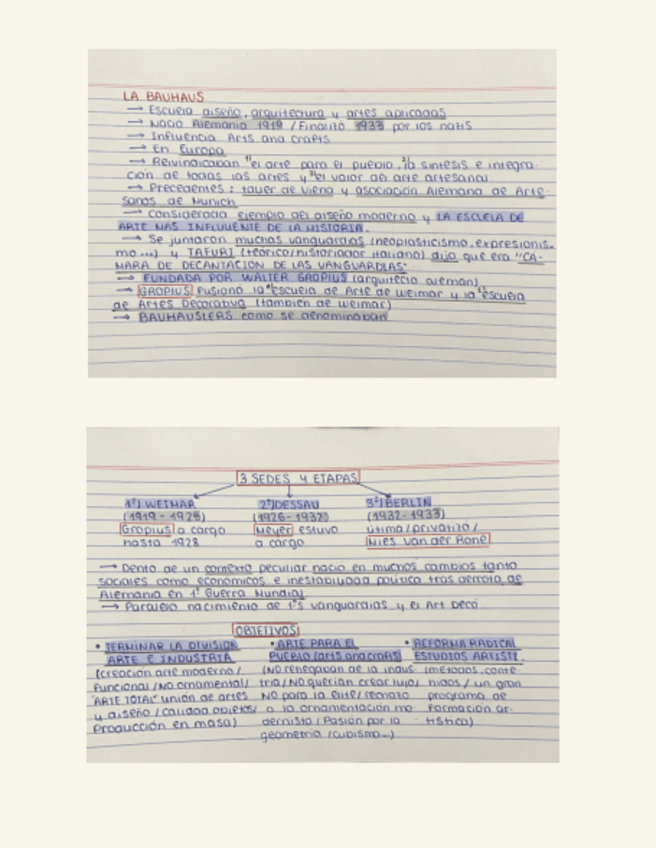 LA BAUHAUS
→ Escuela diseño, arquitectura y artes aplicadas
→ Nació Alemania 1919 / Finalizó 1933 por los nazis
→ Influencia Arts and crafts
→ En Europa
→ Reivindicaban 1) el arte para el pueblo, 2) la síntesis e integra-
ción de todas las artes y 3) el valor del arte artesanal
→ Precedentes: taller de Viena y asociación Alemana de Arte-
sanos de Munich
→ Considerada ejemplo del diseño moderno y LA ESCUELA DE
ARTE MAS INFLUYENTE DE LA HISTORIA.
→ Se juntaron muchas vanguardias (neoplasticismo, expresionis-
mo...) y TAFURI (teórico/historiador italiano) dijo que era "CÁ-
MARA DE DECANTACIÓN DE LAS VANGUARDIAS"
→ FUNDADA POR WALTER GROPIUS (arquitecto alemán)
→ GROPIUS fusionó la escuela de Arte de weimar y la escuela
de Artes Decorativa (también de weimar)
→ BAUHAUSLERS como se denominaban
3 SEDES Y ETAPAS
1ª) WEIMAR 2ª) DESSAU 3ª) BERLIN
(1919 - 1925) (1926 - 1932) (1932 - 1933)
Gropius a cargo Meyer estuvo última / privatizó /
hasta 1928 a cargo Mies van der Rohe
→ Dento de un contexto peculiar nació en muchos cambios tanto
sociales como económicos e inestabilidad política tras derrota de
Alemania en 1ª Guerra Mundial
→ Paralelo nacimiento de 1ªs vanguardias y el Art Decó
OBJETIVOS
• TERMINAR LA DIVISIÓN • ARTE PARA EL • REFORMA RADICAL
ARTE E INDUSTRIA PUEBLO (arts and crafts) ESTUDIOS ARTÍSTI.
(creación arte moderno/ (NO renegaban de la indus- (métodos, conte-
funcional/NO ornamental/ tria/NO querían crear lujo, nidos / un gran
"ARTE TOTAL" unión de artes NO para la élite/rechazo programa de
y diseño / calidad objetos/ a la ornamentación mo- formación ar-
Producción en masa) dernista / Pasión por la tística)
geometría (cubismo...)